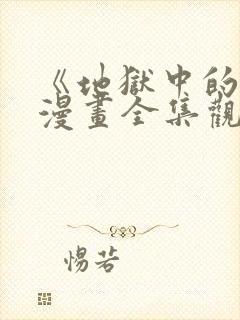 《地獄中的
漫畫全集觀
惕若